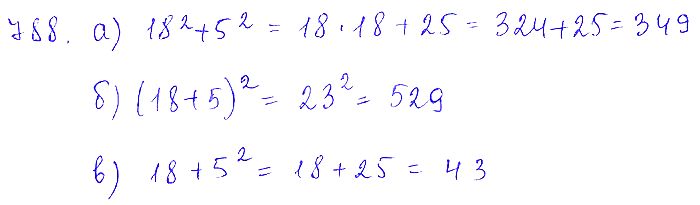 788. а) 18² + 5² = 18 · 18 + 25 = 324 + 25 = 349
б) (18 + 5)² = 23² = 529
в) 18 + 5² = 18 + 25 = 43